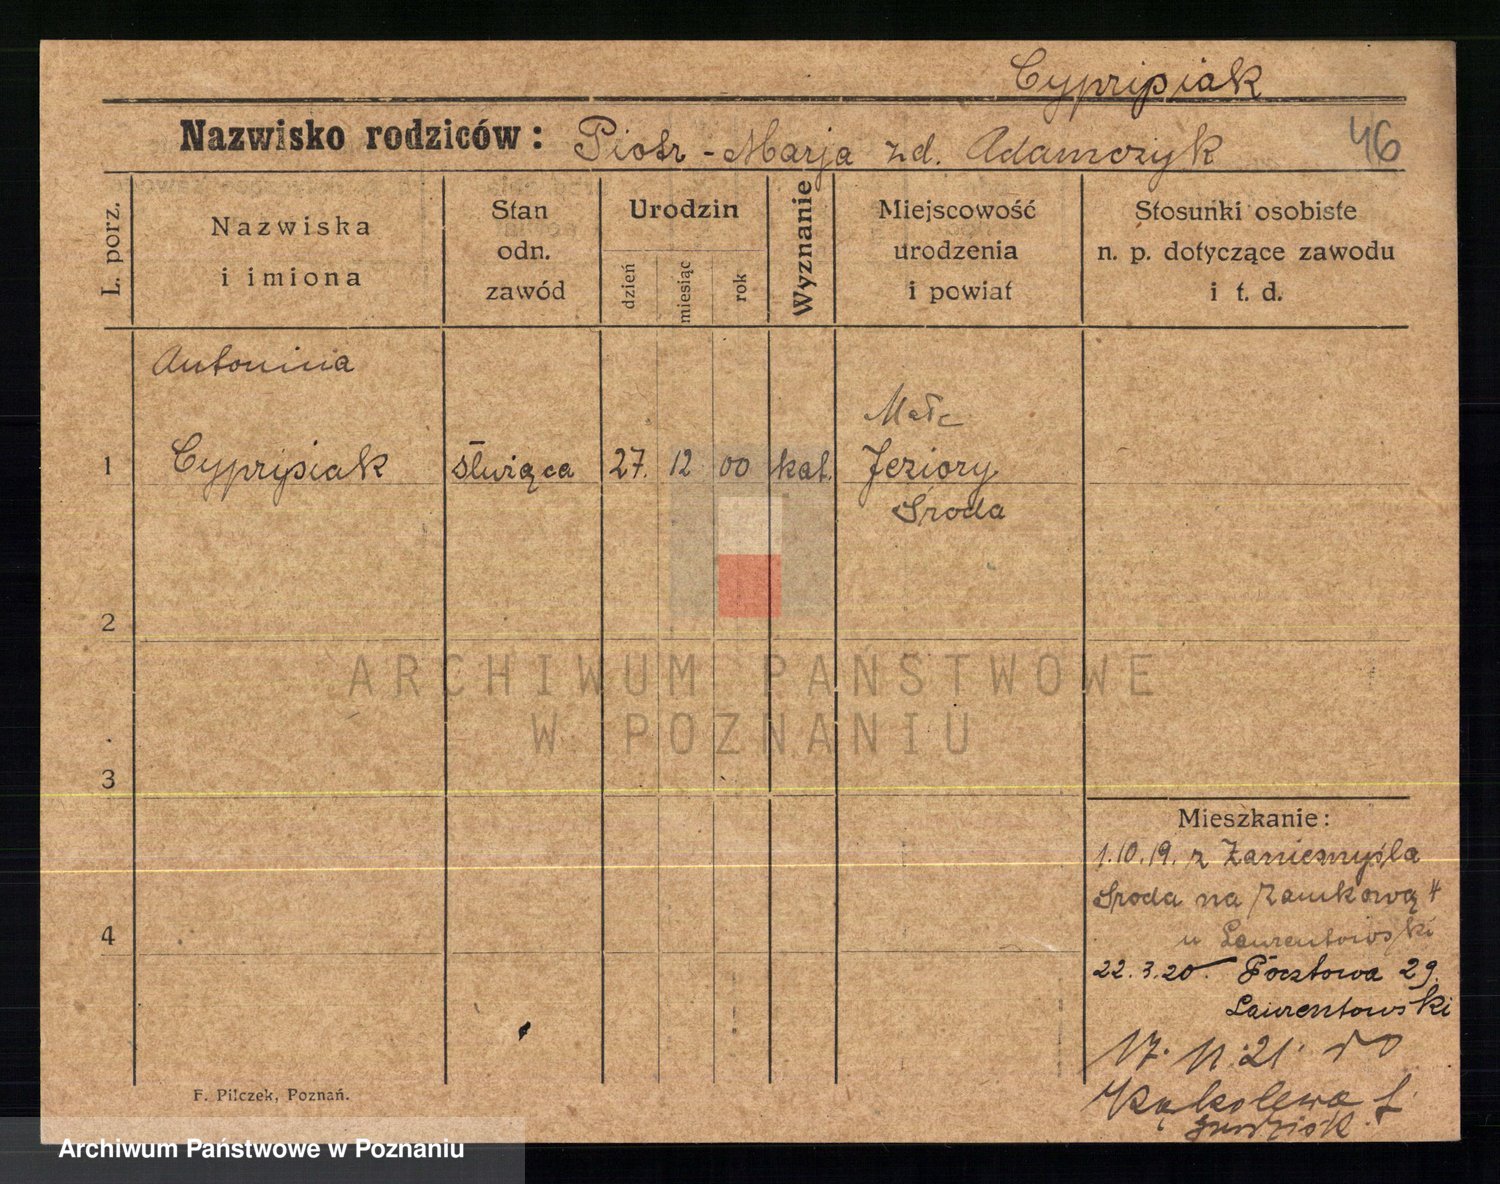 Cyprysiak
Nazwisko rodziców: Piotr - Marja zd. Adamczyk 46
L. porz.
Nazwiska
i imiona
Stan
odn.
zawód
Urodzin
dzień
miesiąc
rok
Wyznanie
Miejscowość
urodzenia
i powiat
Stosunki osobiste
n. p. dotyczące zawodu
i t. d.
Antonina
1 Cyprysiak służąca 27. 12 00 kat.
Małe
Jeziory
Środa
2
3
4
ARCHIWUM PAŃSTWOWE
W POZNANIU
Mieszkanie:
1.10.19. z Zaniemyśla
Środa na Zamkową 4
u Laurentowski
22.3.20. Pocztowa 29.
Laurentowski
17. 11. 21. do
F. Pilczek, Poznań.
Archiwum Państwowe w Poznaniu